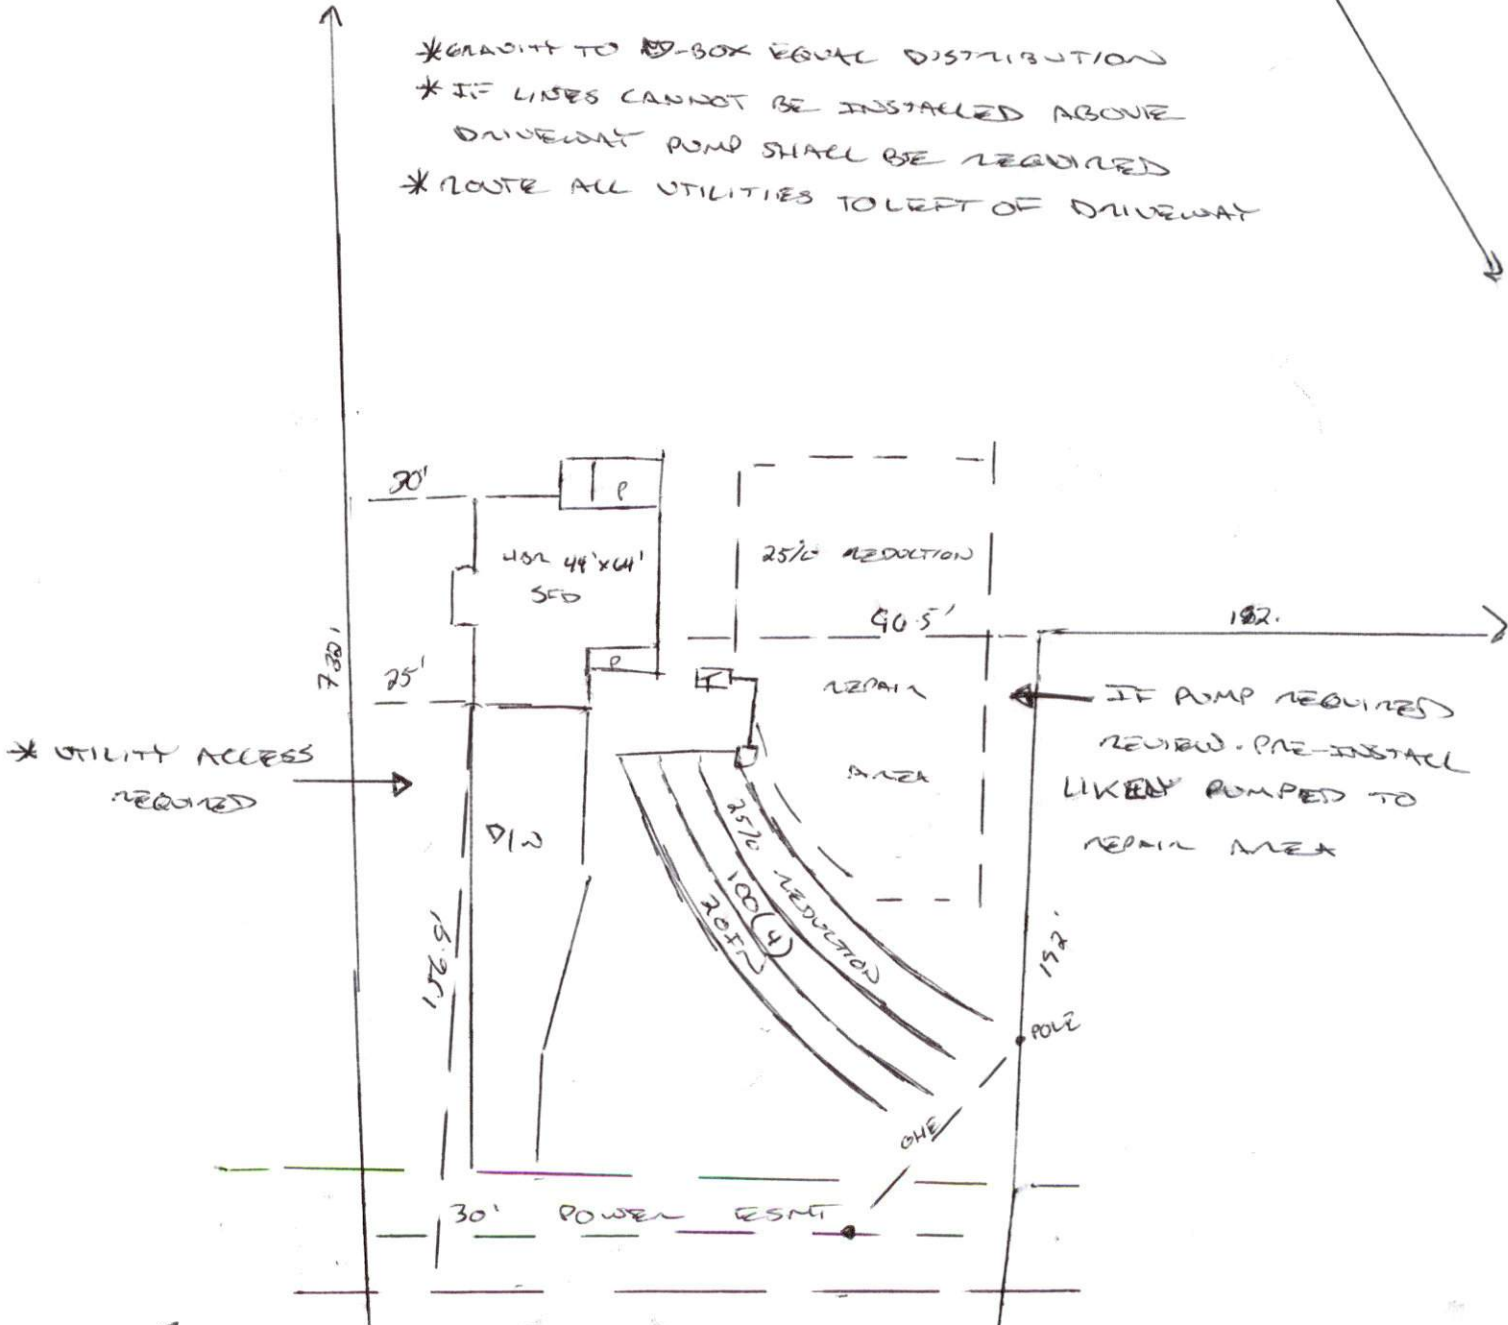 * GRAVITY TO D-BOX EQUAL DISTRIBUTION
* IF LINES CANNOT BE INSTALLED ABOVE
DRIVEWAY PUMP SHALL BE REQUIRED
* ROUTE ALL UTILITIES TO LEFT OF DRIVEWAY
30'
P
4BR 44'x64'
SFD
25% REDUCTION
90.5'
192.
P
25'
732'
REPAIR
AREA
IF PUMP REQUIRED
REVIEW. PRE-INSTALL
LIKELY PUMPED TO
REPAIR AREA
* UTILITY ACCESS
REQUIRED
D/W
25% REDUCTION
100(4)
20IN
156.9'
192'
POLE
OHE
30' POWER ESMT